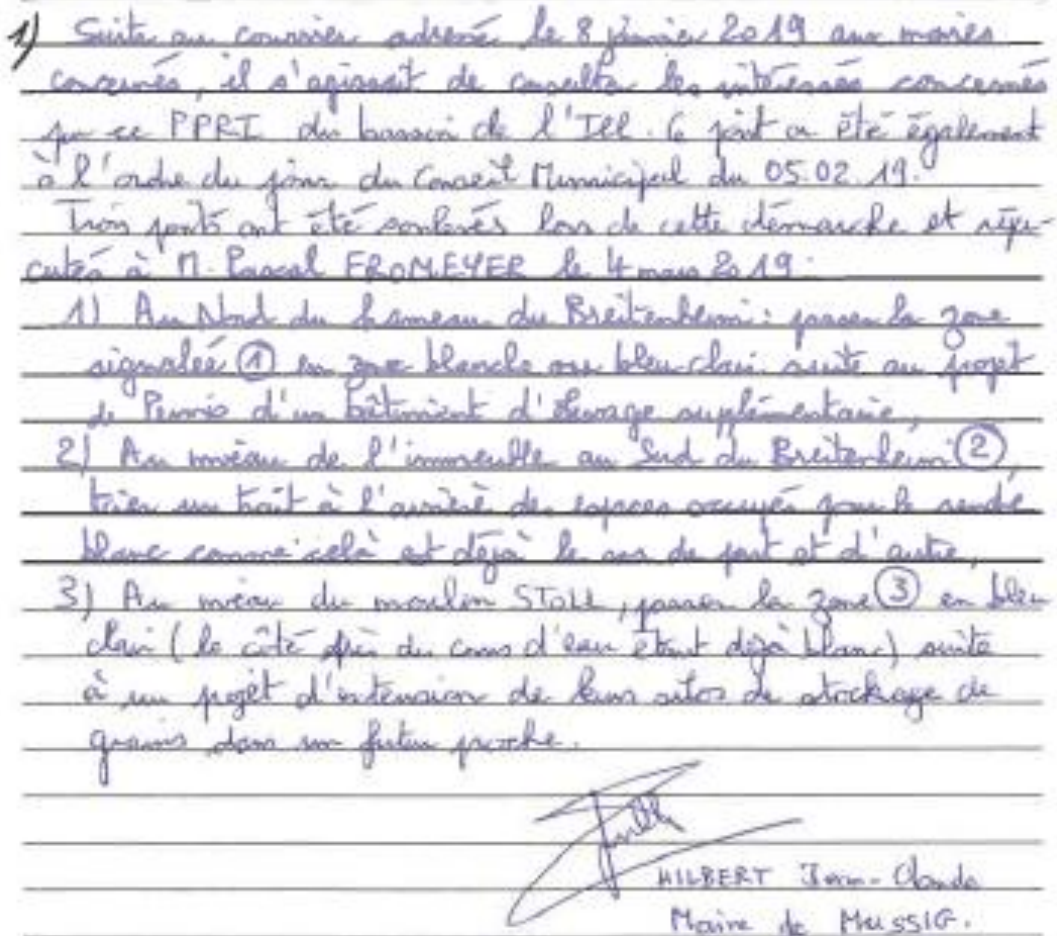 1) Suite au courrier adressé le 8 janvier 2019 aux maires
concernés, il s'agissait de consulter les intéressés concernés
par ce PPRI du bassin de l'Ill. Ce point a été également
à l'ordre du jour du Conseil Municipal du 05.02.19.
Trois points ont été soulevés lors de cette démarche et réper-
cutés à M. Pascal FROMEYER le 4 mars 2019.
1) Au Nord du hameau du Breitenheim : passer la zone
signalée ① en zone blanche ou bleu clair suite au projet
de Permis d'un bâtiment d'élevage supplémentaire,
2) Au niveau de l'immeuble au Sud du Breitenheim ②
un trait à l'arrière des espaces occupés pour le rendre
blanc comme celà est déjà le cas de part et d'autre,
3) Au niveau du moulin STOLL, passer la zone ③ en bleu
clair (le côté près du cours d'eau étant déjà blanc) suite
à un projet d'extension de leurs silos de stockage de
grains dans un futur proche.
HILBERT Jean-Claude
Maire de MUSSIG.